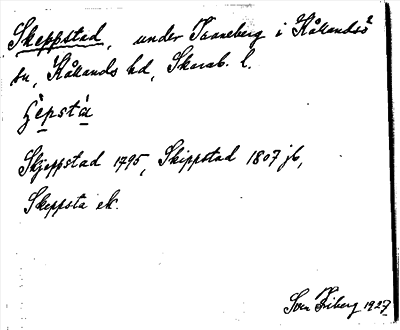 Skeppstad, under Traneberg i Kållandsö
sn, Kållands hd, Skarab. l.
Skjeppstad 1795, Skippstad 1807 jb,
Skeppsta ek.
Sven Friberg 1927